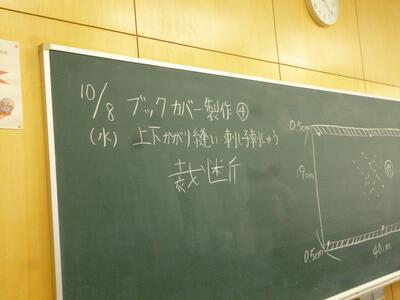 10/8 ブックカバー製作④
(水) 上下かがり縫い・刺し子刺しゅう
裁断
0.5cm
19cm
0.5cm
40cm